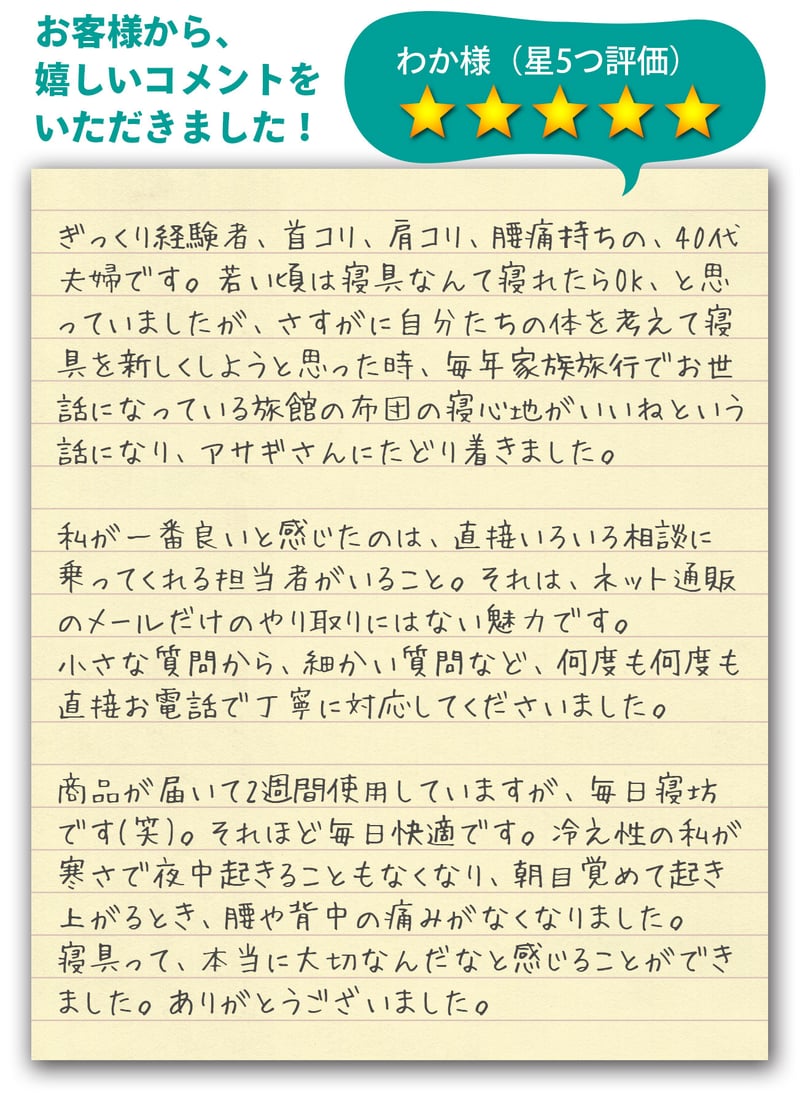 お客様から、
嬉しいコメントを
いただきました！
わか様（星5つ評価）
ぎっくり経験者、首コリ、肩コリ、腰痛持ちの、40代
夫婦です。若い頃は寝具なんて寝れたらOK、と思
っていましたが、さすがに自分たちの体を考えて寝
具を新しくしようと思った時、毎年家族旅行でお世
話になっている旅館の布団の寝心地がいいねという
話になり、アサギさんにたどり着きました。
私が一番良いと感じたのは、直接いろいろ相談に
乗ってくれる担当者がいること。それは、ネット通販
のメールだけのやり取りにはない魅力です。
小さな質問から、細かい質問など、何度も何度も
直接お電話で丁寧に対応してくださいました。
商品が届いて2週間使用していますが、毎日寝坊
です(笑)。それほど毎日快適です。冷え性の私が
寒さで夜中起きることもなくなり、朝目覚めて起き
上がるとき、腰や背中の痛みがなくなりました。
寝具って、本当に大切なんだなと感じることができ
ました。ありがとうございました。